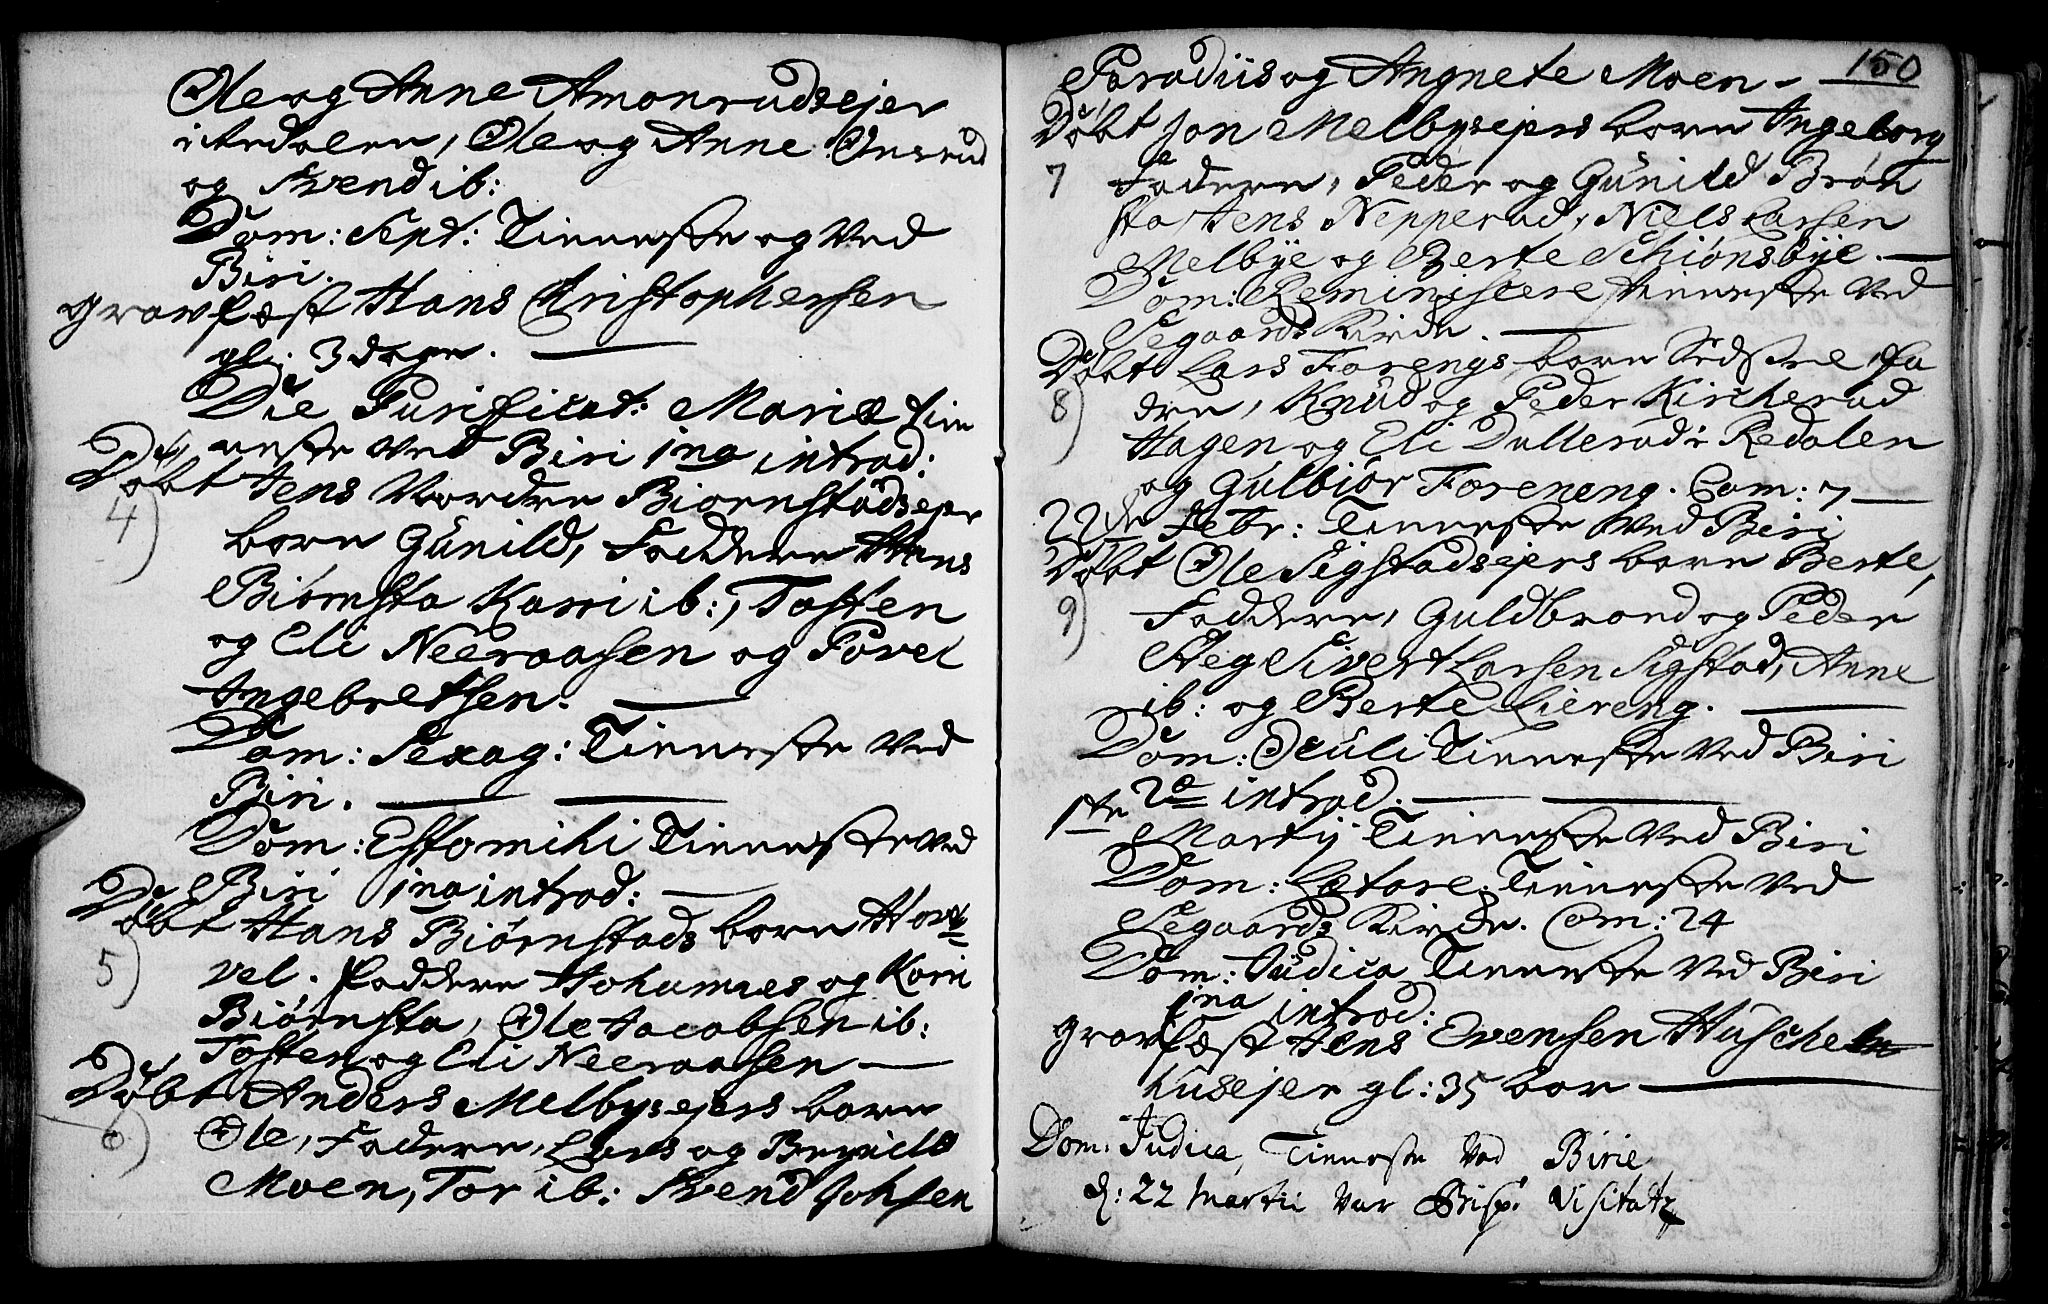 Ole og Anne Amonrudsejer
i Redalen, Ole og Anne Onsrud
og Svend ib:
Dom: Sept: Tienneste og Ved
Biri.
gravfæst Hans Christophersen
gl: 3 dage.
Die Purificat: Mariæ tien
neste Ved Biri 1na introd:
Døbt Jens Nordre Biørnstadsejer
4) barn Gunild, Faddere Hans
Biørnsta Karri ib:, Tosten
og Eli Neeraasen og Povel
Ingebretsen.
Dom: Sexag: Tienneste Ved
Biri.
Dom: Estomihi Tienneste Ved
Biri 1na introd:
Døbt Hans Biørnstads barn Haa
5) vel. Faddere Johannes og Kari
Biørnsta, Ole Jacobsen ib:
Tosten og Eli Neeraasen
Døbt Anders Melbysejers barn
6) Ole, Fadere, Lars og Beynild
Moen, Tor ib: Svend Johsen
150
Paradiis og Angnete Moen
Døbt Jon Melbysejers barn Ingeborg
7 Fadere, Peder og Gunild Brøn
sta Jens Nepperud, Niels Larsen
Melbye og Berte Schiønsbye.
Dom: Reminiscere Tienneste Ved
Segaards Kirche.
Døbt Lars Forengs barn Sidsele, fa
8) dere, Knud og Peder Kircherud
Hagen og Eli Dullerud i Redalen
og Gulbiør Foreneng. Com: 7
22de Febr: Tienneste Ved Biri
Døbt Ole Sigstadsejers barn Berte,
9) Faddere, Guldbrand og Peder
Heg Sivert Larsen Sigstad, Anne
ib: og Berte Liereng.
Dom: Oculi Tienneste Ved Biri
2de introd.
1ste Martij Tienneste Ved Biri
Dom: Lætare Tienneste Ved
Segaards Kirche. Com: 24
Dom: Judica Tienneste Ved Biri
1na introd:
gravfæst Jens Evensen Huschele
Kusejer gl: 35 aar
Dom: Judica, Tienneste Ved Birie
d: 22 Martii Var Bisp: Visitatz